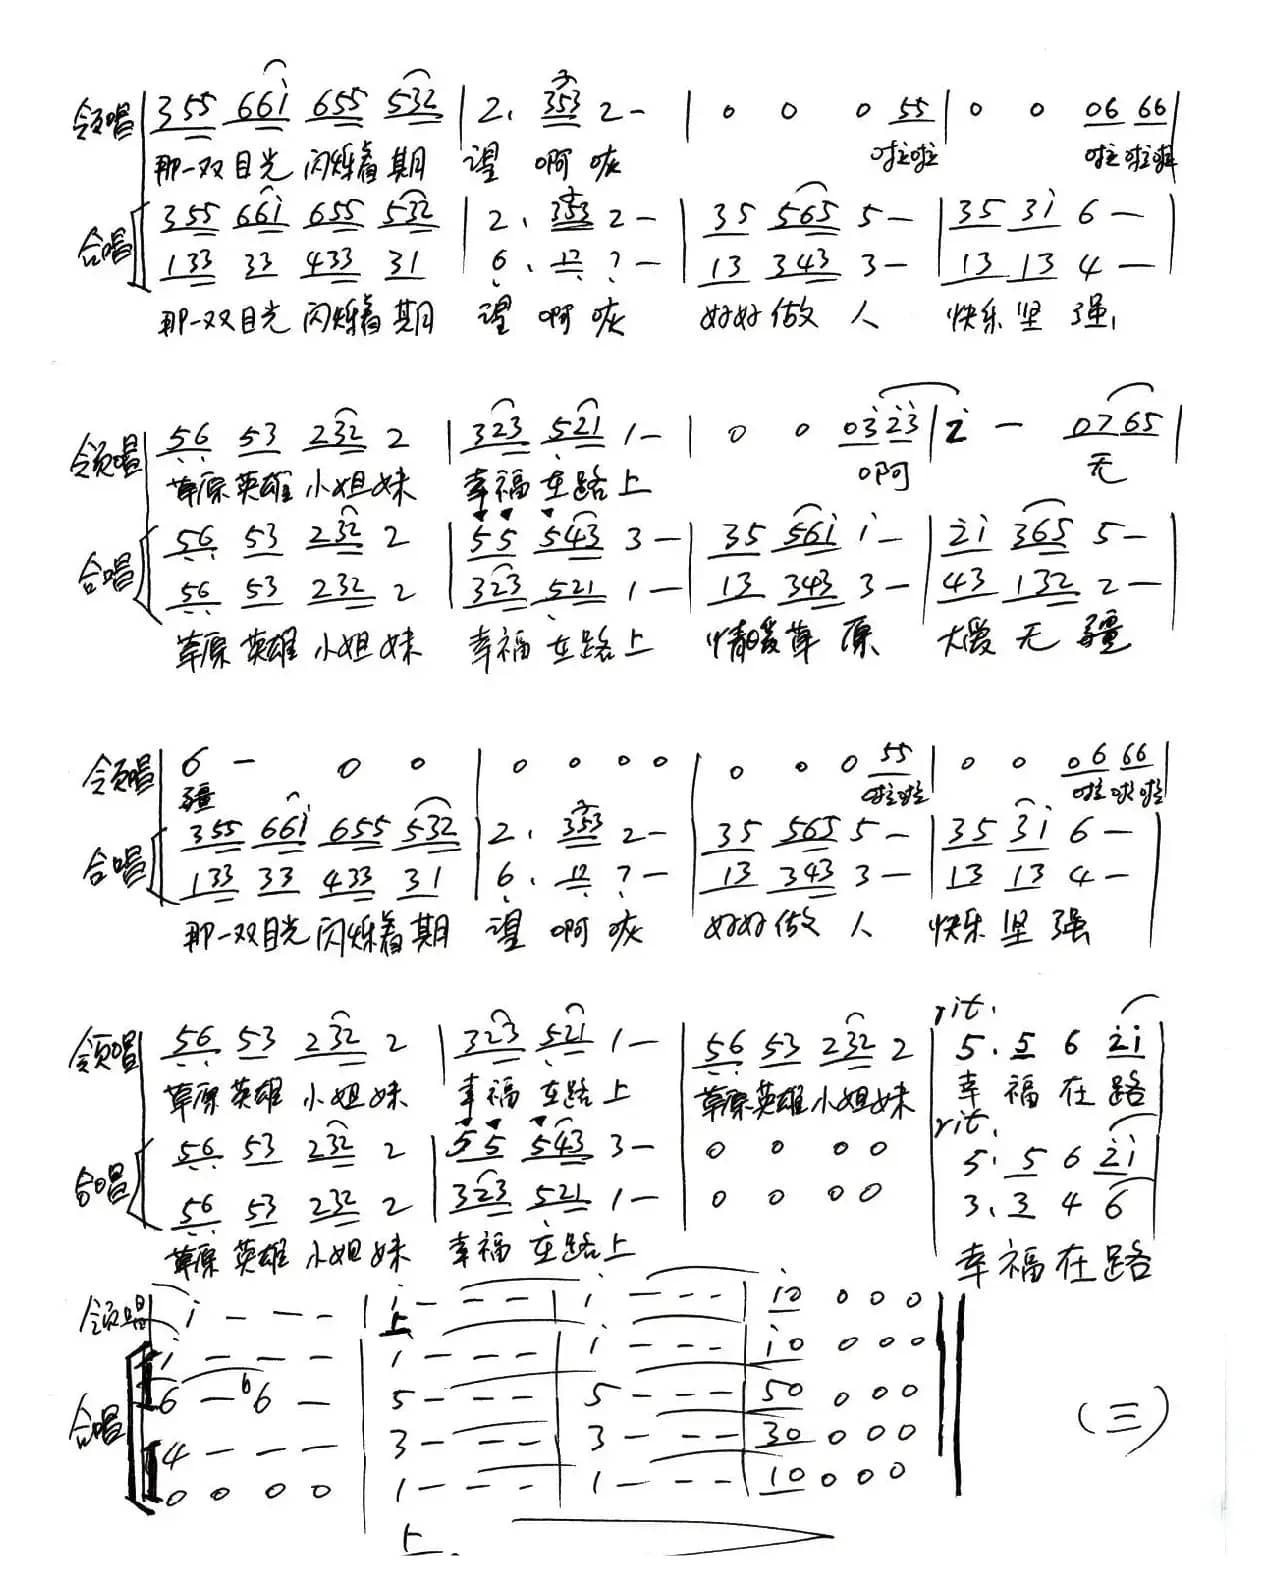 领唱 355 661̇ 655 532 | 2. 353 2 - | 0 0 0 55 | 0 0 06 66 |
那一双目光 闪烁着期 望 啊 咳 啦啦 啦啦啦
合唱 355 661̇ 655 532 | 2. 353 2 - | 35 565 5 - | 35 31̇ 6 - |
133 33 433 31 | 6̣. 12 7̣ - | 13 343 3 - | 13 13 4 - |
那一双目光 闪烁着期 望 啊 咳 好好做 人 快乐坚 强,
领唱 5̣6̣ 53 232 2 | 323 5̣21 1 - | 0 0 03̇2̇3̇ | 2̇ - 0765 |
草原英雄 小姐妹 幸福在路上 啊 无
合唱 5̣6̣ 53 232 2 | 55 543 3 - | 35 561̇ 1̇ - | 2̇1̇ 365 5 - |
5̣6̣ 53 232 2 | 323 5̣21 1 - | 13 343 3 - | 43 132 2 - |
草原英雄 小姐妹 幸福在路上 情暖草 原 大爱无 疆
领唱 6 - 0 0 | 0 0 0 0 | 0 0 0 55 | 0 0 06 66 |
疆 啦啦 啦啦啦
合唱 355 661̇ 655 532 | 2. 353 2 - | 35 565 5 - | 35 31̇ 6 - |
133 33 433 31 | 6̣. 12 7̣ - | 13 343 3 - | 13 13 4 - |
那一双目光 闪烁着期 望 啊 咳 好好做 人 快乐坚 强
rit.
领唱 5̣6̣ 53 232 2 | 323 5̣21 1 - | 5̣6̣ 53 232 2 | 5. 5 6 2̇1̇ |
草原英雄 小姐妹 幸福在路上 草原英雄小姐妹 幸 福 在 路
rit.
合唱 5̣6̣ 53 232 2 | 55 543 3 - | 0 0 0 0 | 5. 5 6 2̇1̇ |
5̣6̣ 53 232 2 | 323 5̣21 1 - | 0 0 0 0 | 3. 3 4 6 |
草原英雄 小姐妹 幸福在路上 幸福在路
领唱 1̇ - - - | 1̇ - - - | 1̇ - - - | 1̇0 0 0 0 ‖
上
合唱 1̇ - - - | 1̇ - - - | 1̇ - - - | 1̇0 0 0 0
6 - 6 6 - | 5 - - - | 5 - - - | 50 0 0 0
4 - - - | 3 - - - | 3 - - - | 30 0 0 0
0 0 0 0 | 1 - - - | 1 - - - | 10 0 0 0
上
(三)